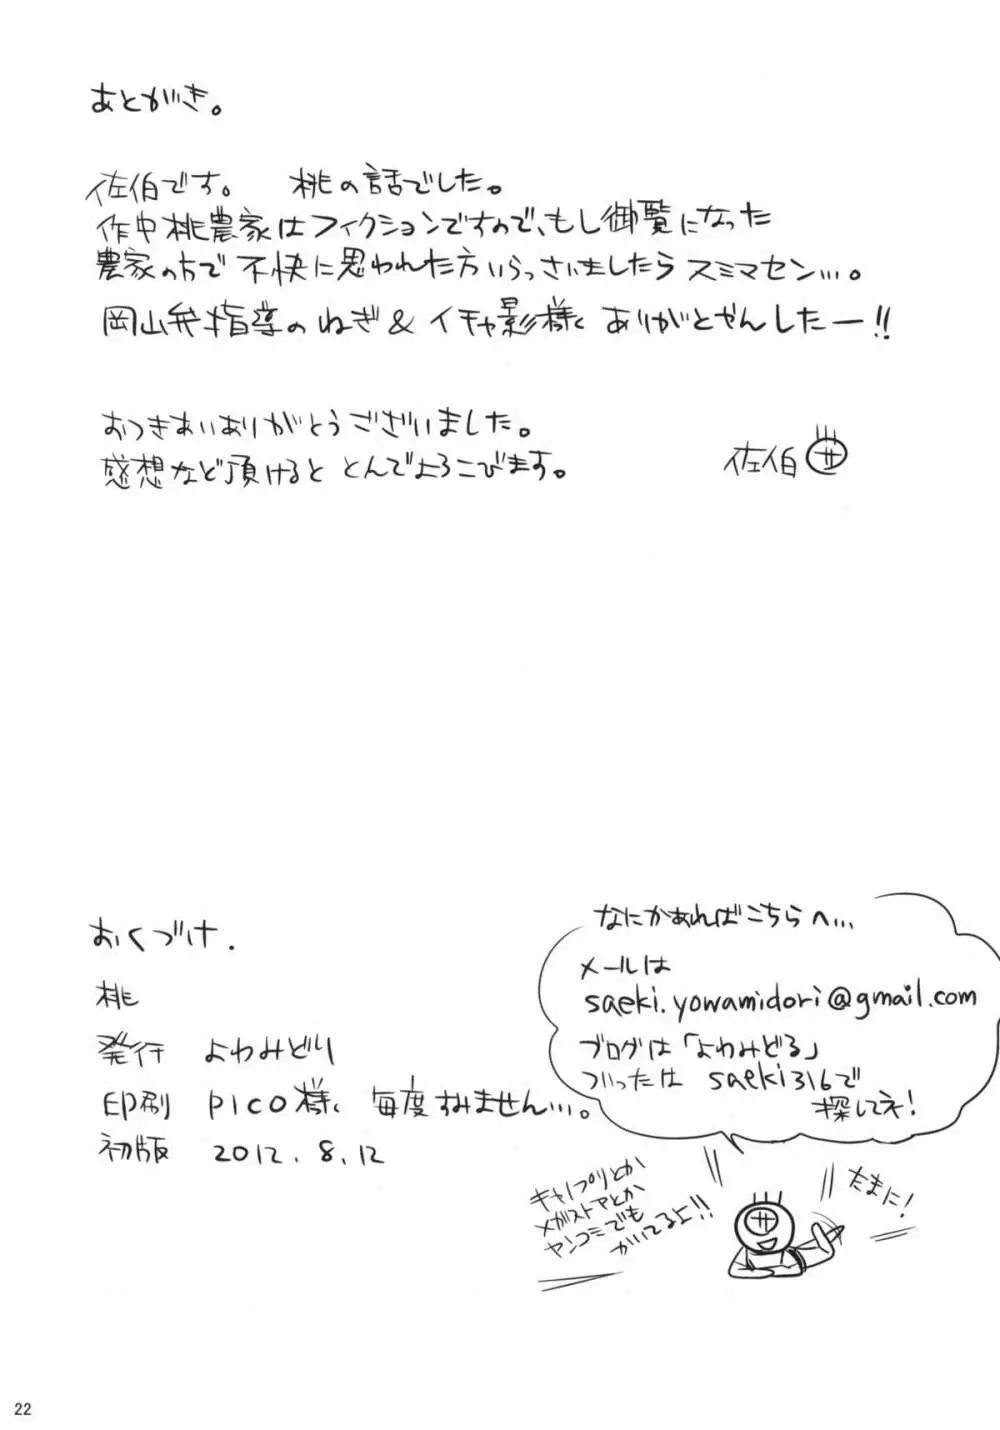 あとがき。
佐伯です。 桃の話でした。
作中桃農家はフィクションですので、もし御覧になった
農家の方で不快に思われた方いらっさいましたらスミマセン…。
岡山弁指導のねぎ&イチャ影様 ありがとやんしたー!!
おつきあいありがとうございました。
感想など頂けるととんでよろこびます。
佐伯 サ
おくづけ.
桃
発行 よわみどり
印刷 PICO様 毎度すみません…。
初版 2012.8.12
なにかあればこちらへ…
メールは
saeki.yowamidori@gmail.com
ブログは「よわみどる」
ついったは saeki316で
探してネ!
キャノプリとか
メガストアとか
ヤンコミでも
かいてるよ!!
たまに!
サ
22